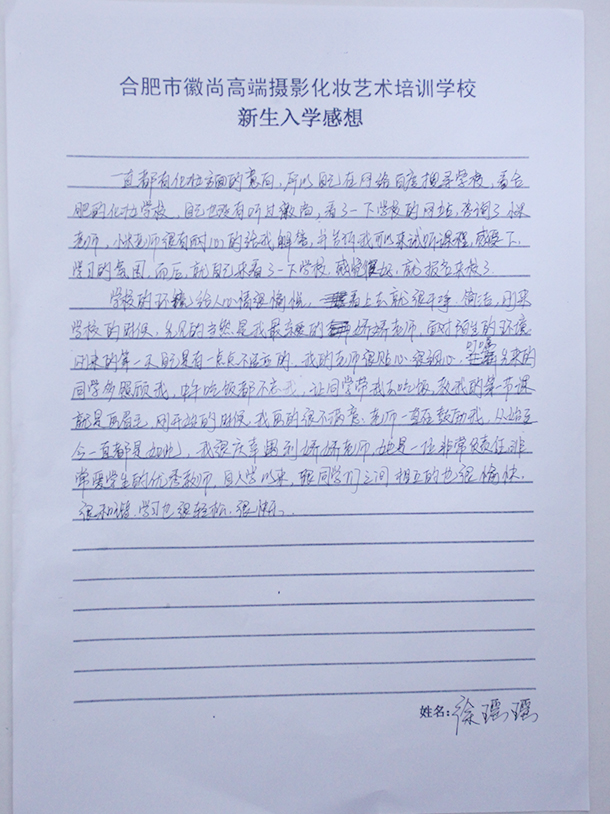 合肥市徽尚高端摄影化妆艺术培训学校
新生入学感想
一直都有化妆方面的意向，所以自己在网络百度搜寻学校，看合
肥的化妆学校，自己也没有听过徽尚，看了一下学校的网站，咨询了小米
老师，小米老师很有耐心的给我解答，并告诉我可以来试听课程，感受下
学习的氛围，而后，就自己来看了一下学校，感觉挺好，就报名来校了
学校的环境给人心情很愉悦，看上去就很干净，简洁，刚来
学校的时候，先见的当然是我最亲爱的娇娇老师，面对陌生的环境
刚来的第一天自己是有一点点不适应的，我的老师很贴心很细心，叮嘱先来的
同学多照顾我，中午吃饭都不忘我，让同学带我去吃饭，教我的第一节课
就是画眉毛，刚开始的时候，我画的很不满意，老师一直在鼓励我，从始至
今一直都是如此，我很庆幸遇到娇娇老师，她是一位非常负责任，非
常爱学生的优秀教师，自入学以来，跟同学们之间相互的也很愉快，
很和谐，学习也很轻松，很快乐。
姓名：徐瑶瑶